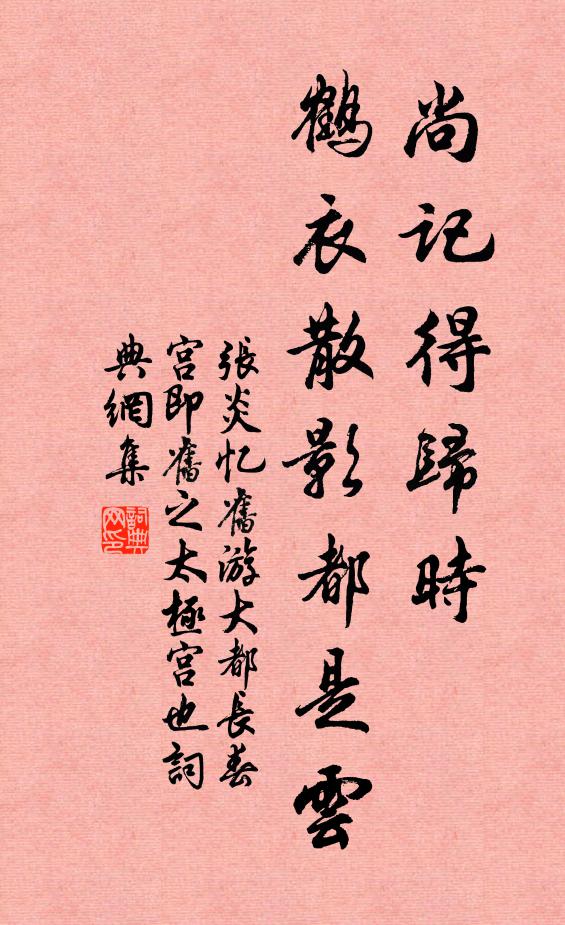 尚記得歸時
鶴衣散影都是雲
張炎忆舊游大都長春
宮即舊之太極宮也詞
典網集
詞典网印